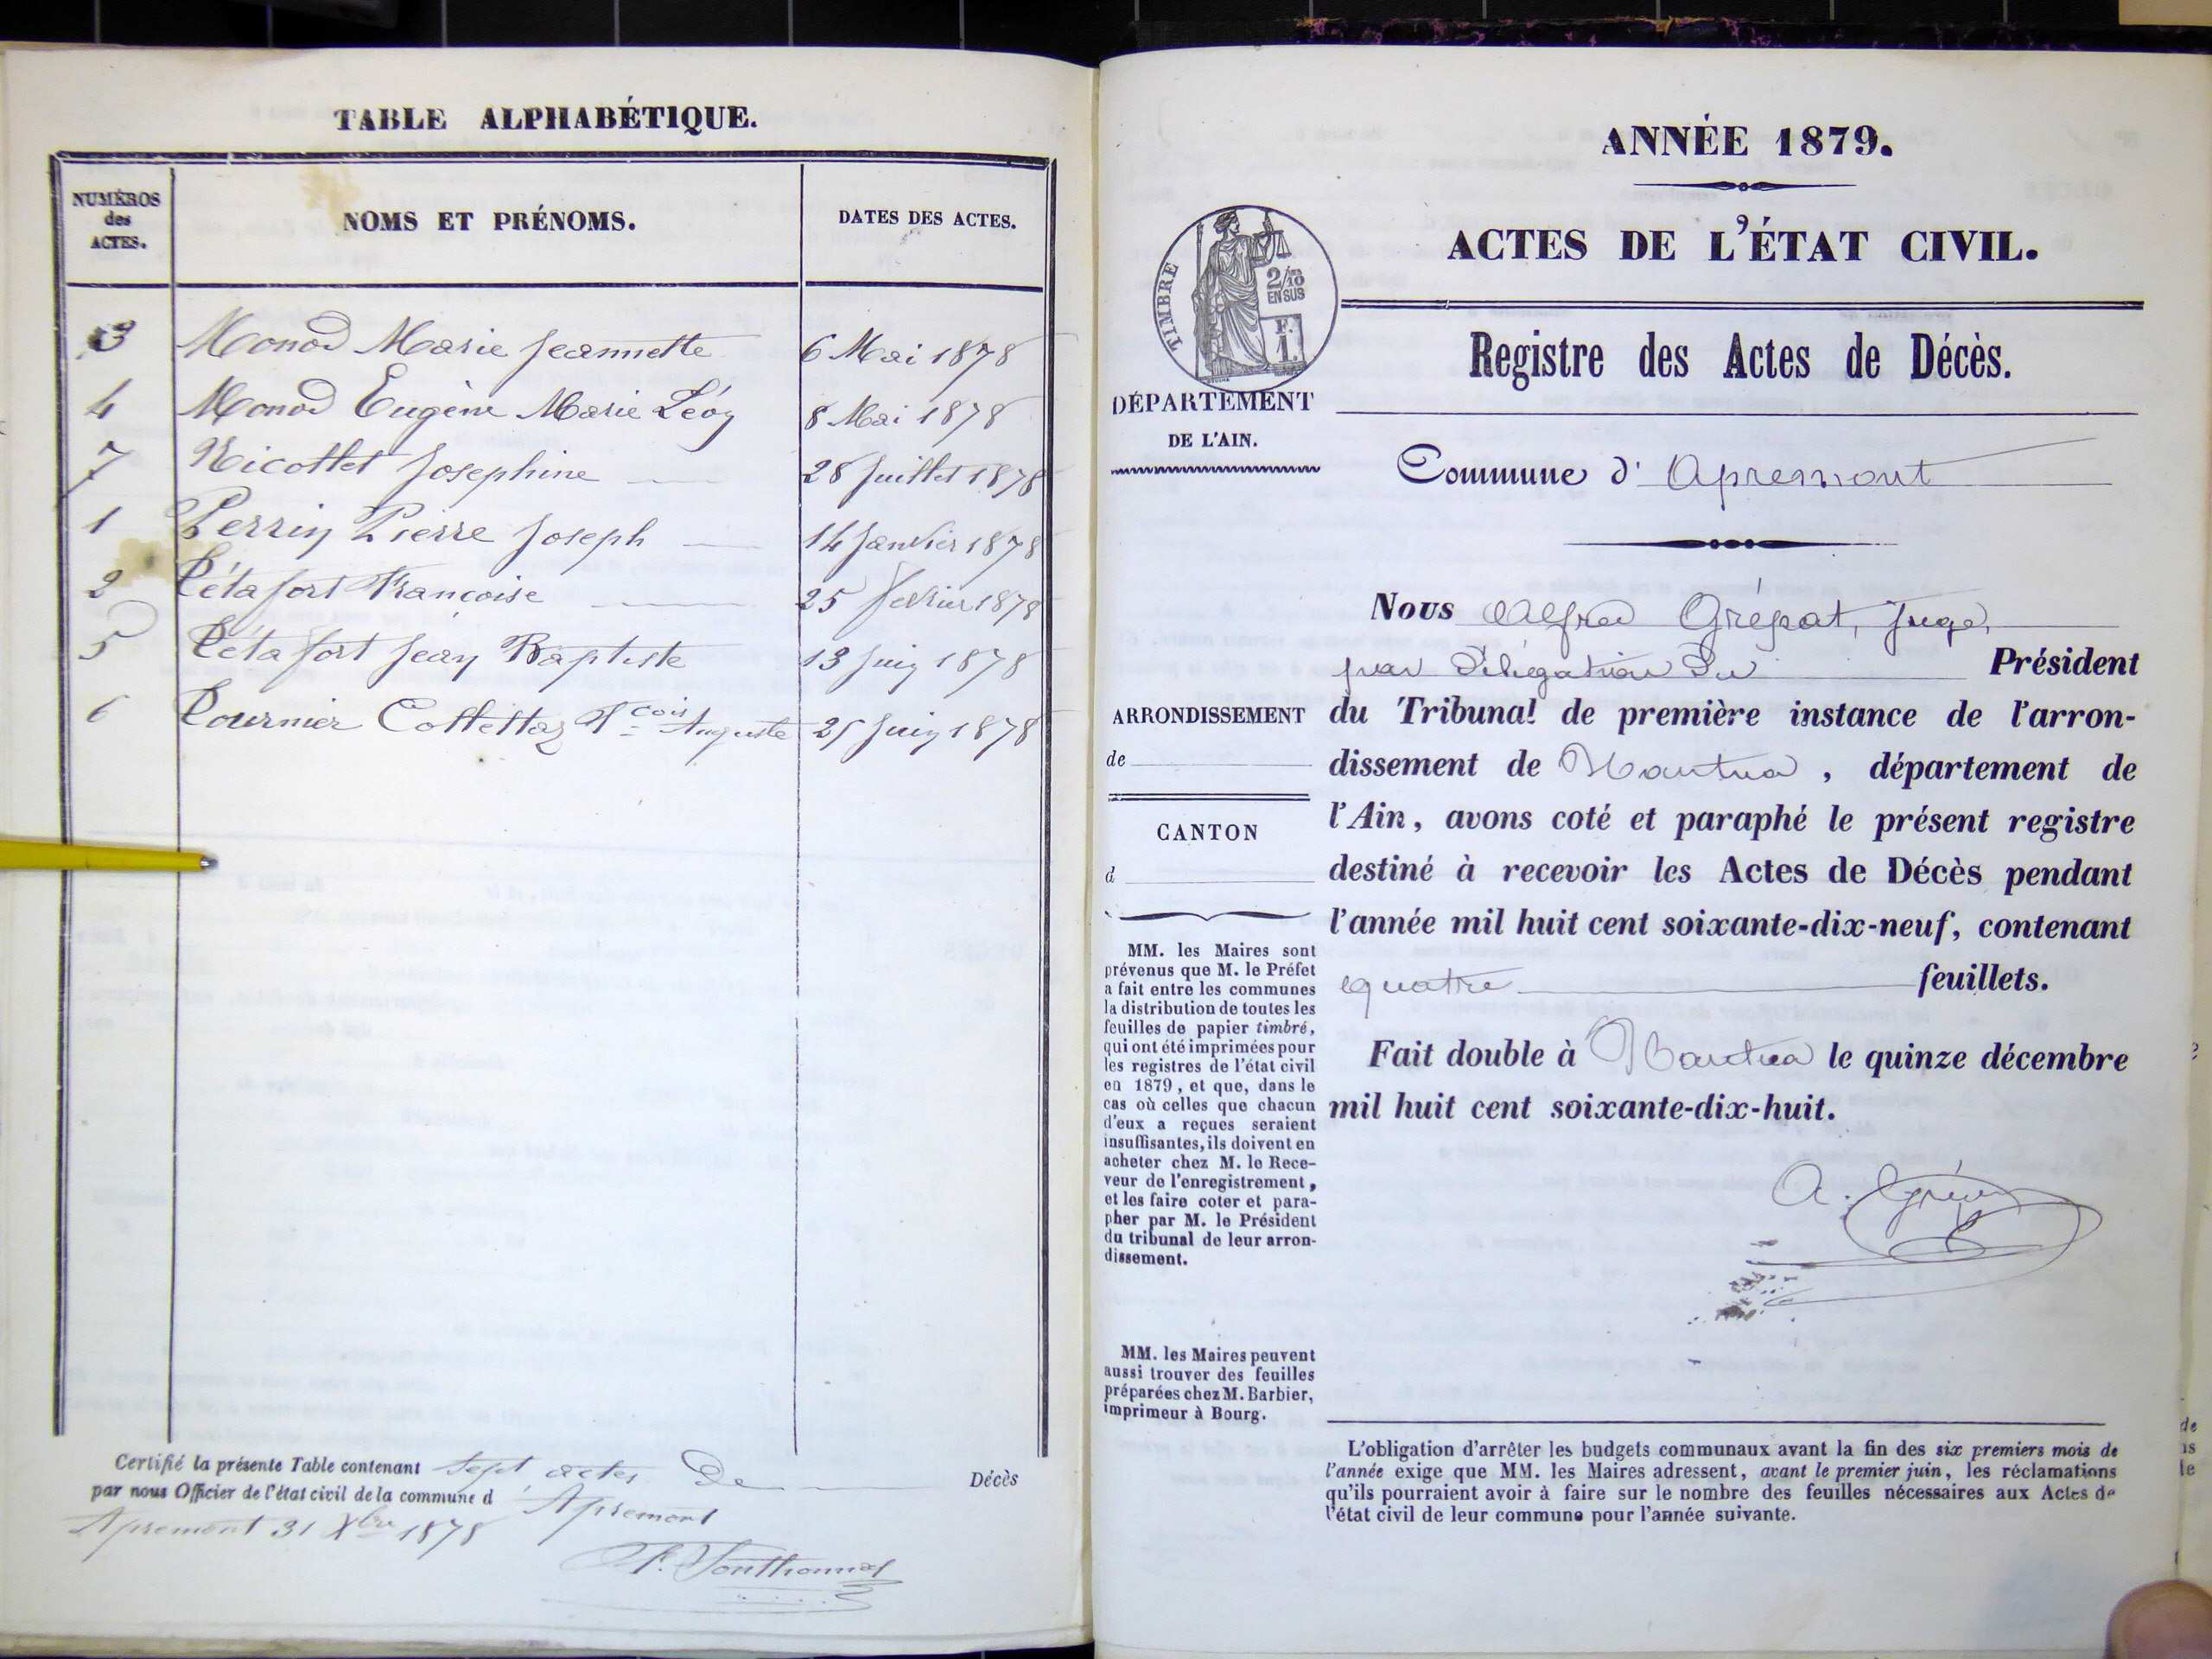 TABLE ALPHABÉTIQUE.
NUMÉROS
des
ACTES.
NOMS ET PRÉNOMS.
DATES DES ACTES.
3 Monod Marie Jeannette 6 Mai 1878
4 Monod Eugène Marie Léon 8 Mai 1878
7 Nicollet Josephine 28 Juillet 1878
1 Perrin Pierre Joseph 14 Janvier 1878
2 Pétafort Françoise 25 fevrier 1878
5 Pétafort Jean Baptiste 13 Juin 1878
6 Pournier Collettaz Fcois Auguste 25 Juin 1878
Certifié la présente Table contenant Sept actes De Décès
par nous Officier de l'état civil de la commune d' Apremont
Apremont 31 Xbre 1878
ANNÉE 1879.
ACTES DE L'ÉTAT CIVIL.
TIMBRE
2/10
EN SUS
F.
1.
Registre des Actes de Décès.
DÉPARTEMENT
DE L'AIN.
Commune d' Apremont
Nous Alfred Grépat, Juge,
par Délégation du Président
ARRONDISSEMENT
de
CANTON
d
du Tribunal de première instance de l'arron-
dissement de Nantua, département de
l'Ain, avons coté et paraphé le présent registre
destiné à recevoir les Actes de Décès pendant
l'année mil huit cent soixante-dix-neuf, contenant
quatre feuillets.
Fait double à Nantua le quinze décembre
mil huit cent soixante-dix-huit.
MM. les Maires sont
prévenus que M. le Préfet
a fait entre les communes
la distribution de toutes les
feuilles de papier timbré,
qui ont été imprimées pour
les registres de l'état civil
en 1879, et que, dans le
cas où celles que chacun
d'eux a reçues seraient
insuffisantes, ils doivent en
acheter chez M. le Rece-
veur de l'enregistrement,
et les faire coter et para-
pher par M. le Président
du tribunal de leur arron-
dissement.
MM. les Maires peuvent
aussi trouver des feuilles
préparées chez M. Barbier,
imprimeur à Bourg.
L'obligation d'arrêter les budgets communaux avant la fin des six premiers mois de
l'année exige que MM. les Maires adressent, avant le premier juin, les réclamations
qu'ils pourraient avoir à faire sur le nombre des feuilles nécessaires aux Actes de
l'état civil de leur commune pour l'année suivante.